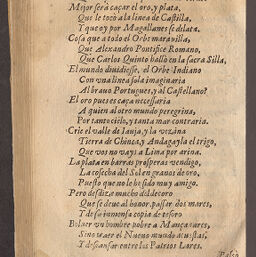 Mejor será caçar el oro, y plata,
Que le tocò a la linea de Castilla,
Y que oy por Magallanes se dilata.
Cosa que a todo el Orbe maravilla,
Que Alexandro Pontifice Romano,
Que Carlos Quinto hallò en la sacra Silla,
El mundo dividiesse, el Orbe Indiano
Con vna linea sola imaginaria
Al bravo Portugues, y al Castellano?
El oro pues es caça necessaria
A quien al otro mundo peregrina,
Por tanto cielo, y tanta mar contraria.
Crie el valle de Iauja, y la vezina
Tierra de Chinca, y Andagayla el trigo,
Que vos no vays a Lima por arina.
La plata en barras prosperas vendigo,
La cosecha del Sol en granos de oro,
Puesto que no le he sido muy amigo.
Pero desdiza mucho del decoro
Que se deue al honor, passar dos mares,
Y de su inmensa copia de tesoro
Boluer vn hombre pobre a Mançanares,
Sino traer el Nueuo mundo a cuestas,
Y descansar entre los Patrios Lares.